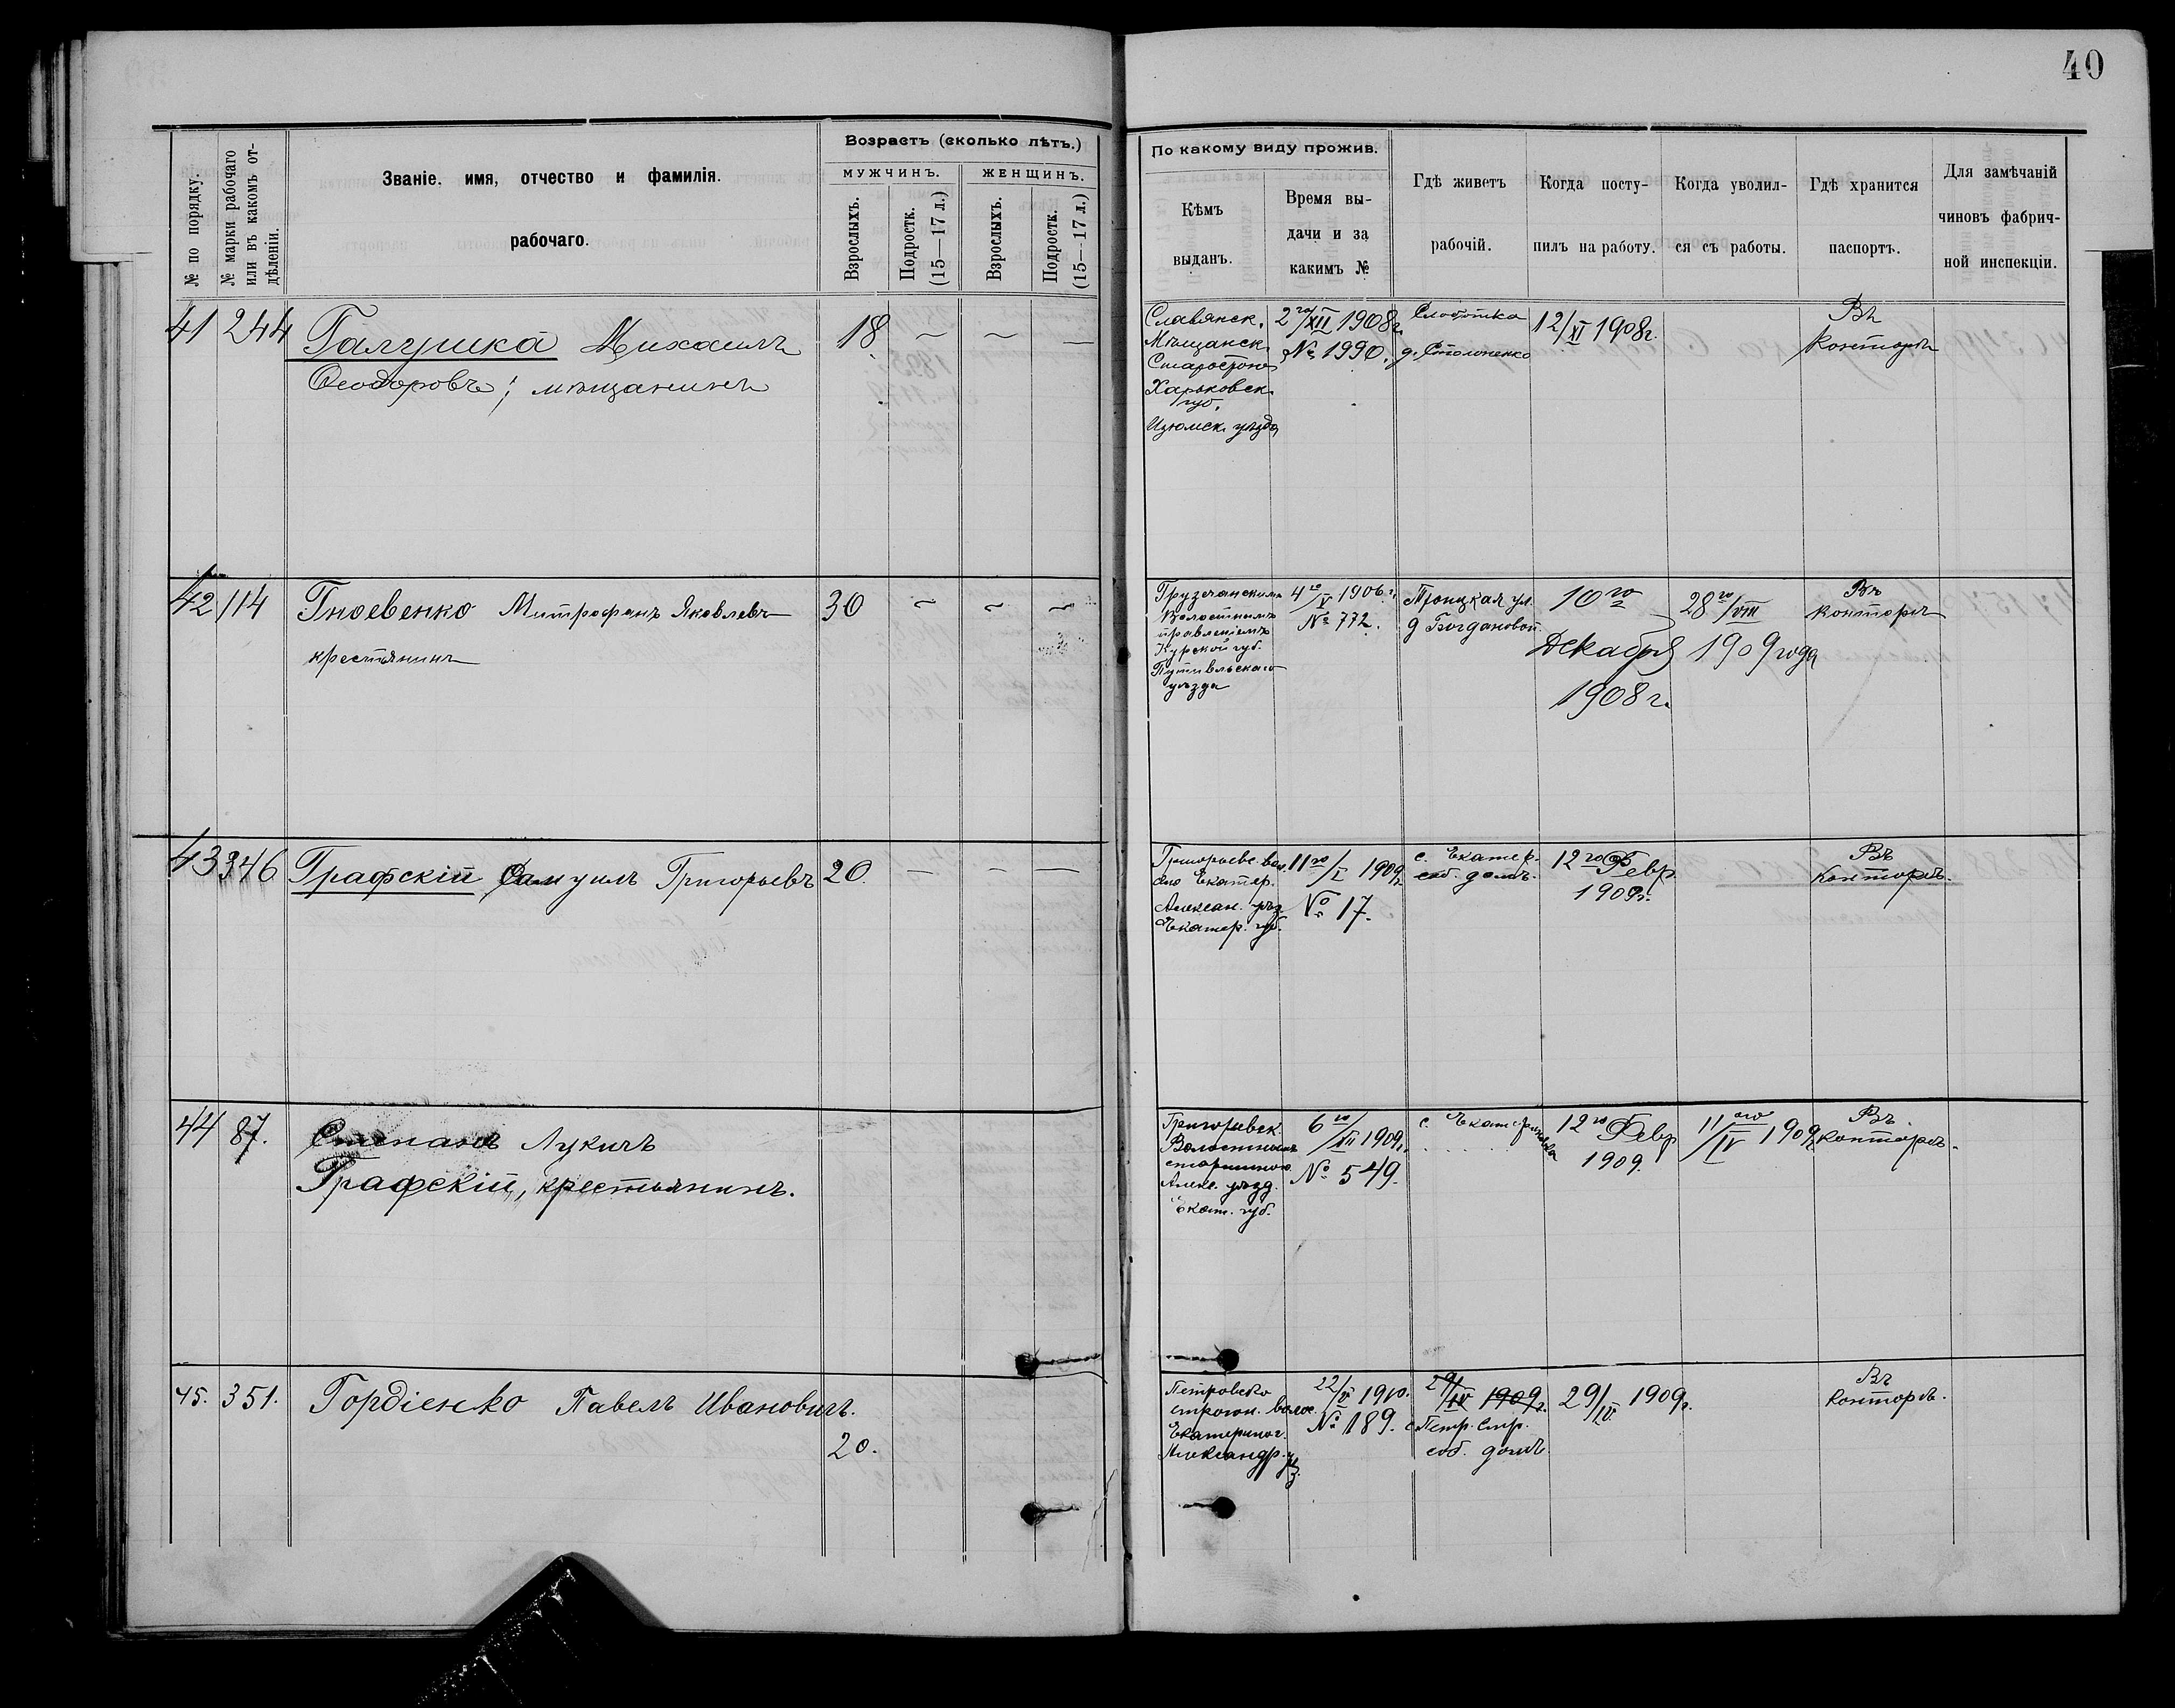 40
№ по порядку.
№ марки рабочаго
или въ какомъ от-
дѣленіи.
Званіе, имя, отчество и фамилія.
рабочаго.
Возрастъ (сколько лѣтъ.)
МУЖЧИНЪ.
ЖЕНЩИНЪ.
Взрослыхъ.
Подростк.
(15—17 л.)
Взрослыхъ.
Подростк.
(15—17 л.)
По какому виду прожив.
Кѣмъ
выданъ.
Время вы-
дачи и за
какимъ №
Гдѣ живетъ
рабочій.
Когда посту-
пилъ на работу.
Когда уволил-
ся съ работы.
Гдѣ хранится
паспортъ.
Для замѣчаній
чиновъ фабрич-
ной инспекціи.
41 244
Галушка Михаилъ
Ѳеодоровъ; мѣщанинъ
18 — — —
Славянск.
Мѣщанск.
Старостою
Харьковск.
губ.
Изюмск. уѣзда
2го/XII 1908г.
№ 1990.
Слободка
12/XI 1908г.
Въ
конторѣ
42 114
Гноевенко Митрофанъ Яковлевъ
крестьянинъ
30 — — —
Грузчанскимъ
Волостнымъ
правленіемъ
Курской губ.
Путивльскаго
уѣзда
4го/V 1906 г.
№ 772.
Троицкая ул.
д Богдановой.
10го
Декабря
1908 г.
28го/VIII
1909 года
Въ
конторѣ
43 346
Графскій Самуилъ Григорьевъ
20. — — —
Григорьевс. вол.
Алексан. уѣз.
Екатер. губ.
11го/I 1909г.
№ 17.
с. Екатер.
соб. домъ.
12го Февр.
1909г.
Въ
конторѣ.
44 87.
Степанъ Лукичъ
Графскій, крестьянинъ.
Григорьевск
Волостнымъ
старшиною
Алекс. уѣзд.
Екат. губ.
6го/XII 1909г.
№ 549.
с. Екатериновка
12го Февр
1909.
11ого/IV 1909г.
Въ
конторѣ.
45. 351.
Гордіенко Павелъ Ивановичъ.
20.
Петровско
волос.
Екатериног.
Александр. уѣз.
22/VI 1910.
№ 189.
29/IV 1909г.
с. Петр. Стр.
соб. домъ.
29/IV. 1909г.
Въ
конторѣ.